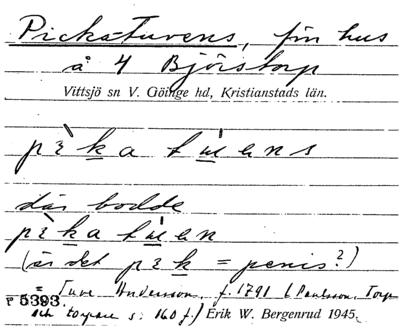 Picka-Tuvens, fm hus
å 4 Björstorp
Vittsjö sn V. Göinge hd, Kristianstads län.
pèka tuens
där bodde
pèka tuen
(är det pèk = penis?)
= Tuve Andersson, f. 1791 (Paulsson, Torp
P 5393.
och torpare s. 160 f.) Erik W. Bergenrud 1945.